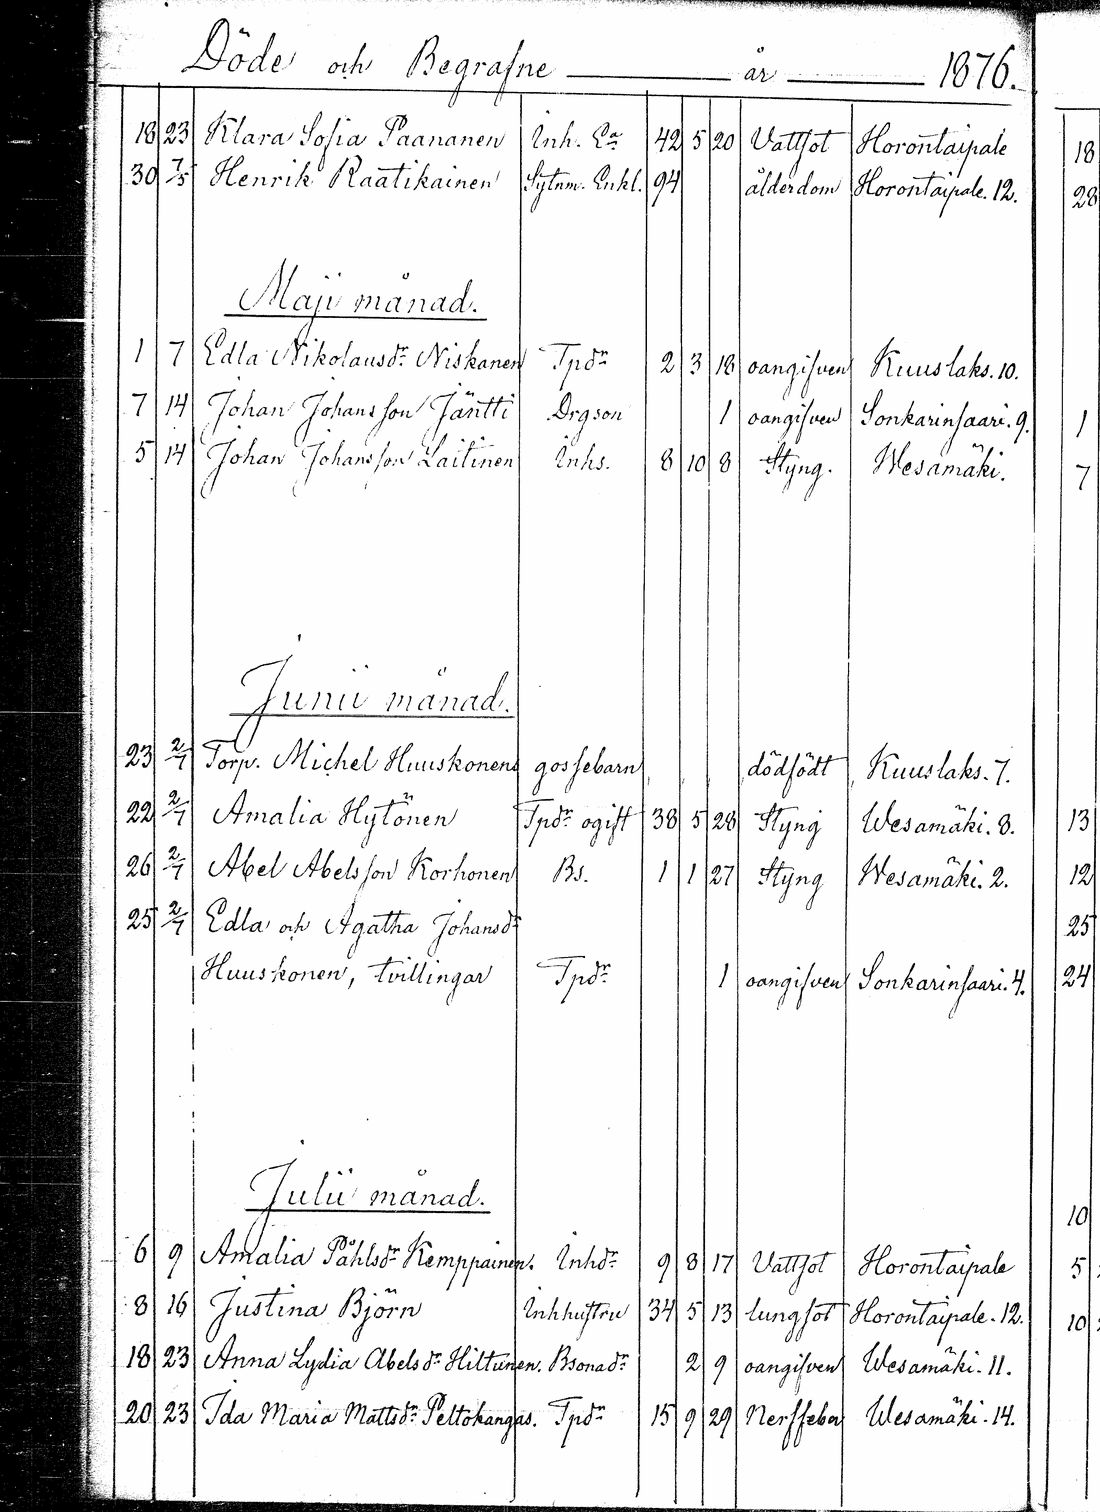 Döde och Begrafne år 1876.
18 23 Klara Sofia Paananen Inh. Ea 42 5 20 Vattsot Horontaipale
30 7/5 Henrik Raatikainen Sytnm. Enkl. 94 ålderdom Horontaipale. 12.
Maji månad.
1 7 Edla Nikolausdr Niskanen Tpdr 2 3 18 oangifven Kuuslaks. 10.
7 14 Johan Johansson Jäntti Drgson 1 oangifven Sonkarinsaari. 9.
5 14 Johan Johansson Laitinen Inhs. 8 10 8 Styng. Wesamäki.
Junii månad.
23 2/7 Torp. Michel Huuskonens gossebarn dödfödt Kuuslaks. 7.
22 2/7 Amalia Hytönen Tpdr ogift 38 5 28 Styng Wesamäki. 8.
26 2/7 Abel Abelsson Korhonen Bs. 1 1 27 Styng Wesamäki. 2.
25 2/7 Edla och Agatha Johansdr
Huuskonen, tvillingar Tpdr 1 oangifven Sonkarinsaari. 4.
Julii månad.
6 9 Amalia Påhlsdr Kemppainen. Inhdr 9 8 17 Vattsot Horontaipale
8 16 Justina Björn Inhhustru 34 5 13 lungsot Horontaipale. 12.
18 23 Anna Lydia Abelsdr Hiltunen. Bsonadr 2 9 oangifven Wesamäki. 11.
20 23 Ida Maria Mattsdr Peltokangas. Tpdr 15 9 29 Nerffeber Wesamäki. 14.
18
28
1
7
13
12
25
24
10
5
10